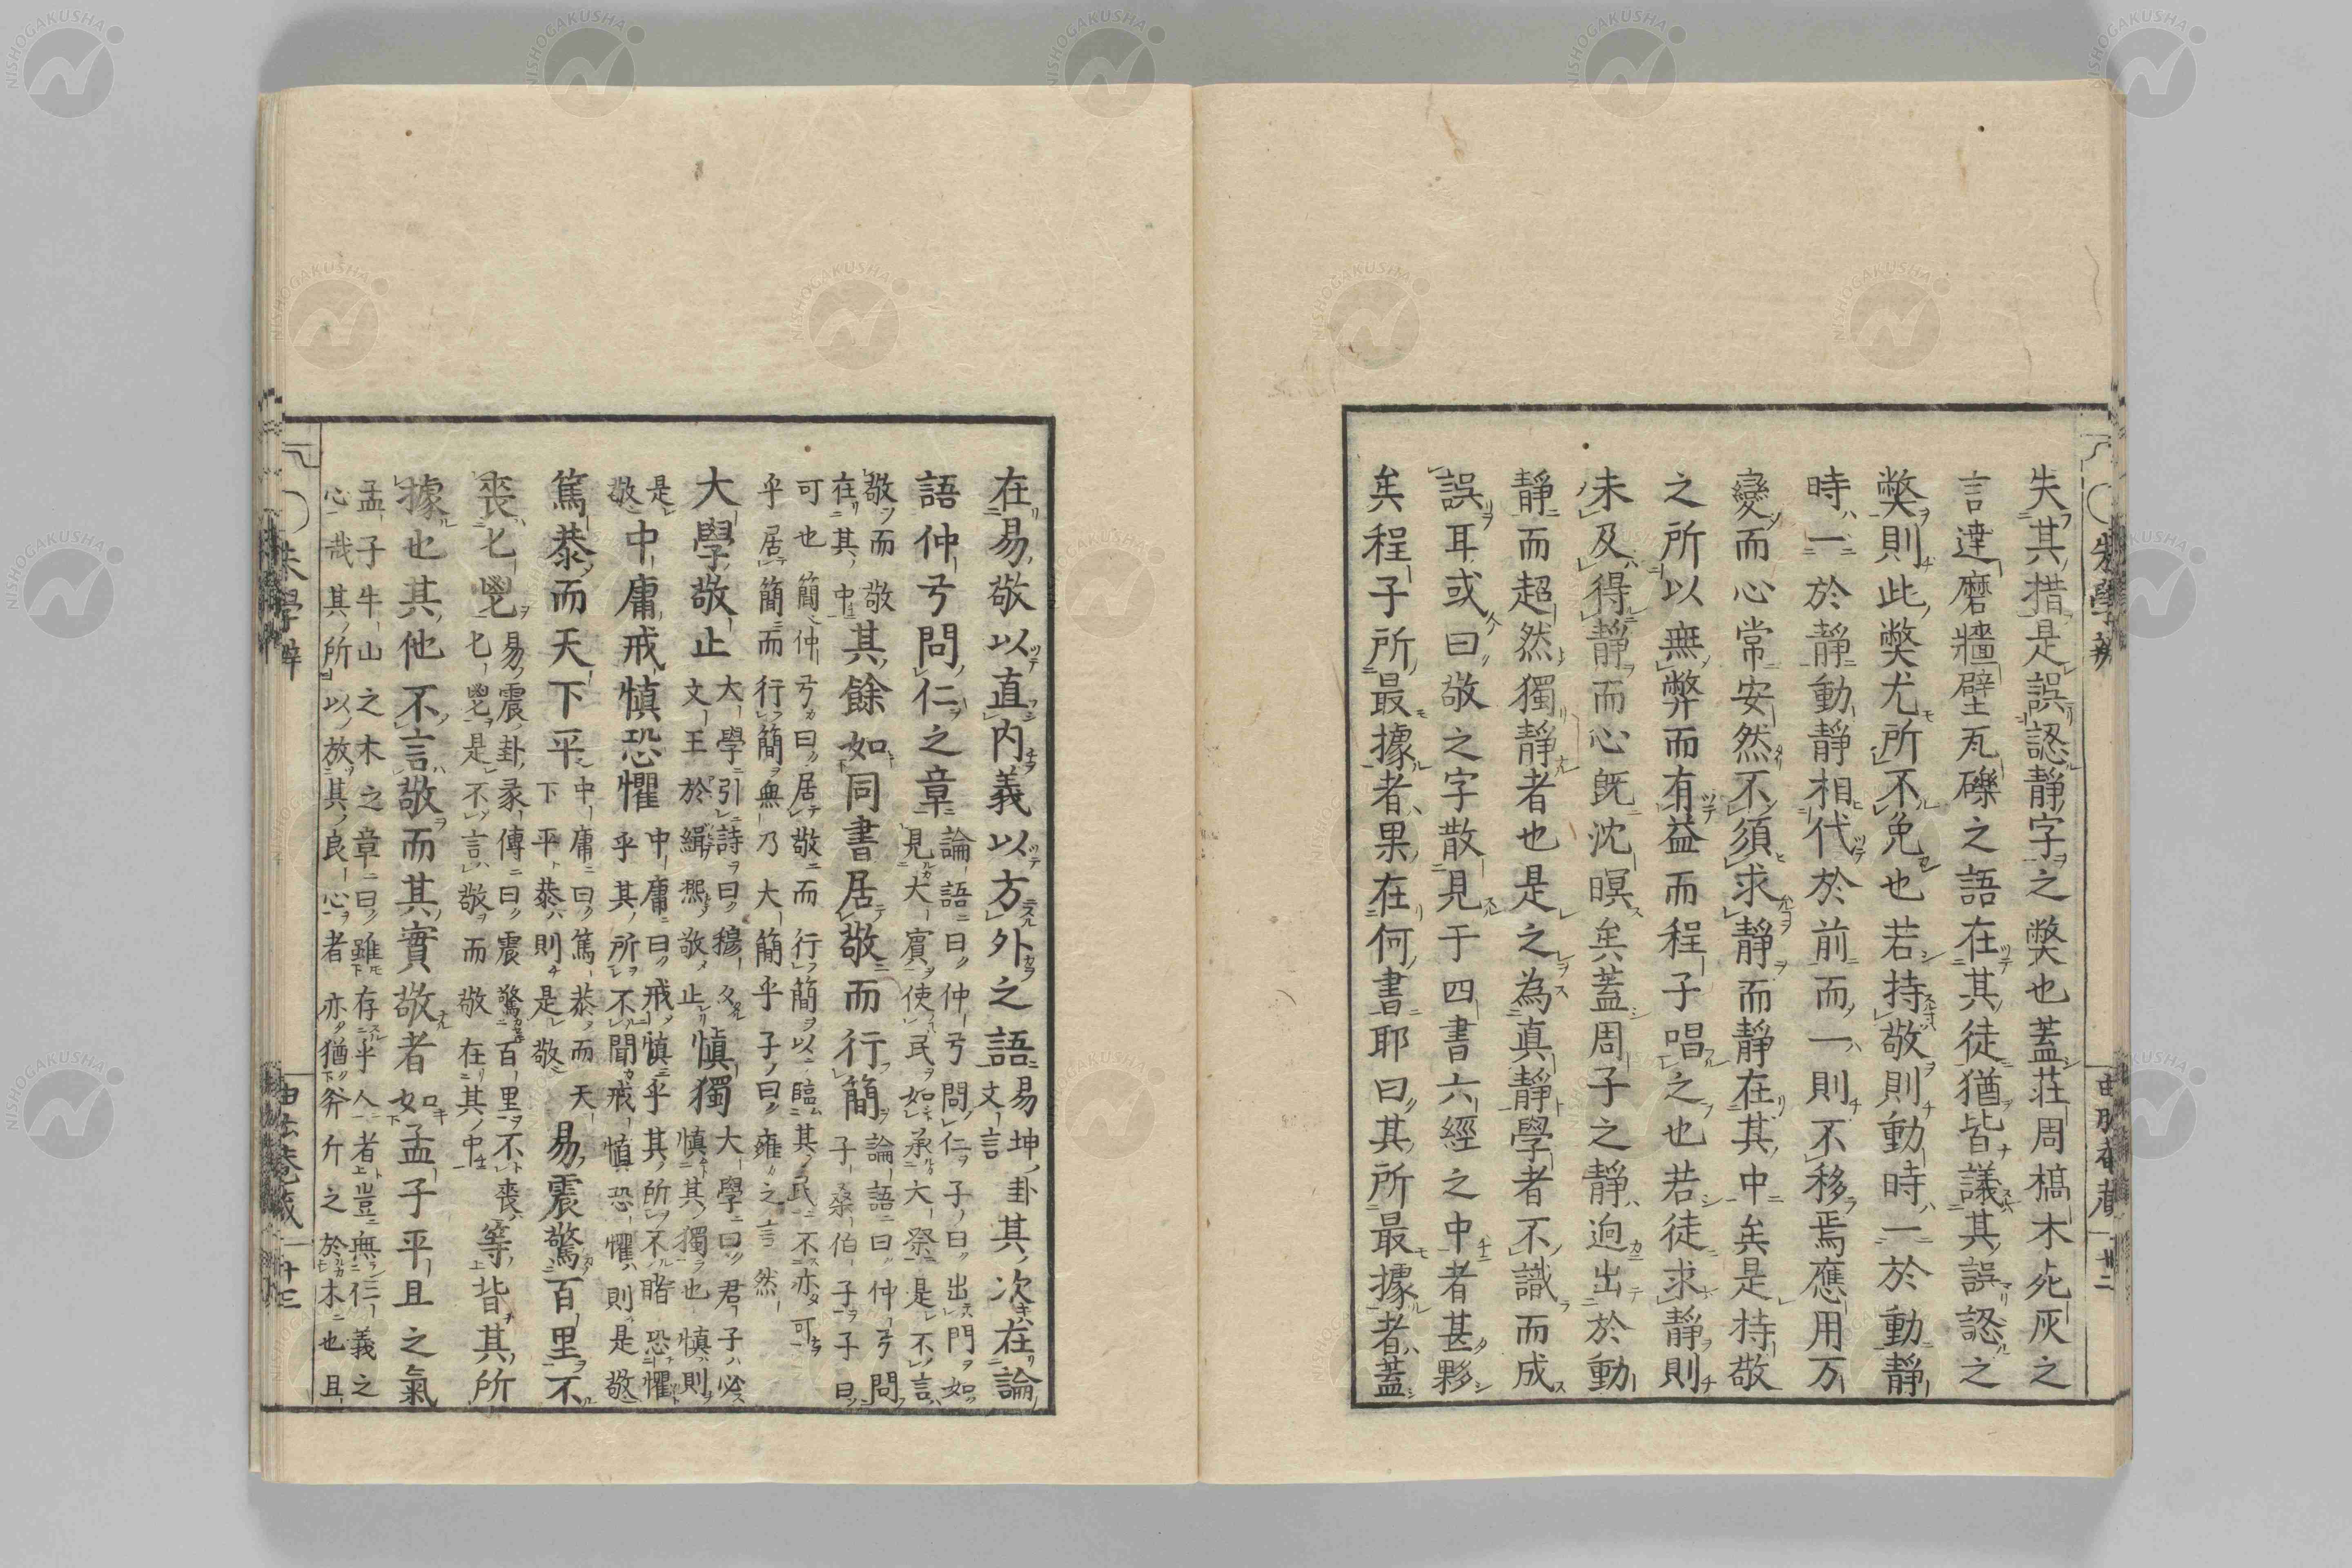 失其措是誤認靜字之弊也蓋莊周槁木死灰之
言達磨牆壁瓦礫之語在其徒猶皆議其誤認之
弊則此弊尤所不免也若持敬則動時一於動靜
時一於靜動靜相代於前而一則不移焉應用万
變而心常安然不須求靜而靜在其中矣是持敬
之所以無弊而有益而程子唱之也若徒求靜則
未及得靜而心既沈暝矣蓋周子之靜迥出於動
靜而超然獨靜者也是之為真靜學者不識而成
誤耳或曰敬之字散見于四書六經之中者甚夥
矣程子所最據者果在何書耶曰其所最據者蓋
在易敬以直內義以方外之語易坤卦其
文言
次在論
語仲弓問仁之章論語曰仲弓問仁子曰出門如
見大賓使民如承大祭是不言
敬而敬
在其中
其餘如同書居敬而行簡論語曰仲弓問
子桑伯子子曰
可也簡仲弓曰居敬而行簡以臨其民不亦可
乎居簡而行簡無乃大簡乎子曰雍之言然
大學敬止大學引詩曰穆々
文王於緝熙敬止
慎獨大學曰君子必
慎其獨也慎則
是
敬
中庸戒慎恐懼中庸曰戒慎乎其所不睹恐懼
乎其所不聞戒慎恐懼則是敬
篤恭而天下平中庸曰篤恭而天
下平恭則是敬
易震驚百里不
喪匕鬯易震卦彖傳曰震驚百里不喪
匕鬯是不言敬而敬在其中
等皆其所
據也其他不言敬而其實敬者如孟子平旦之氣
孟子牛山之木之章曰雖存乎人者豈無仁義之
心哉其所以放其良心者亦猶斧斤之於木也旦